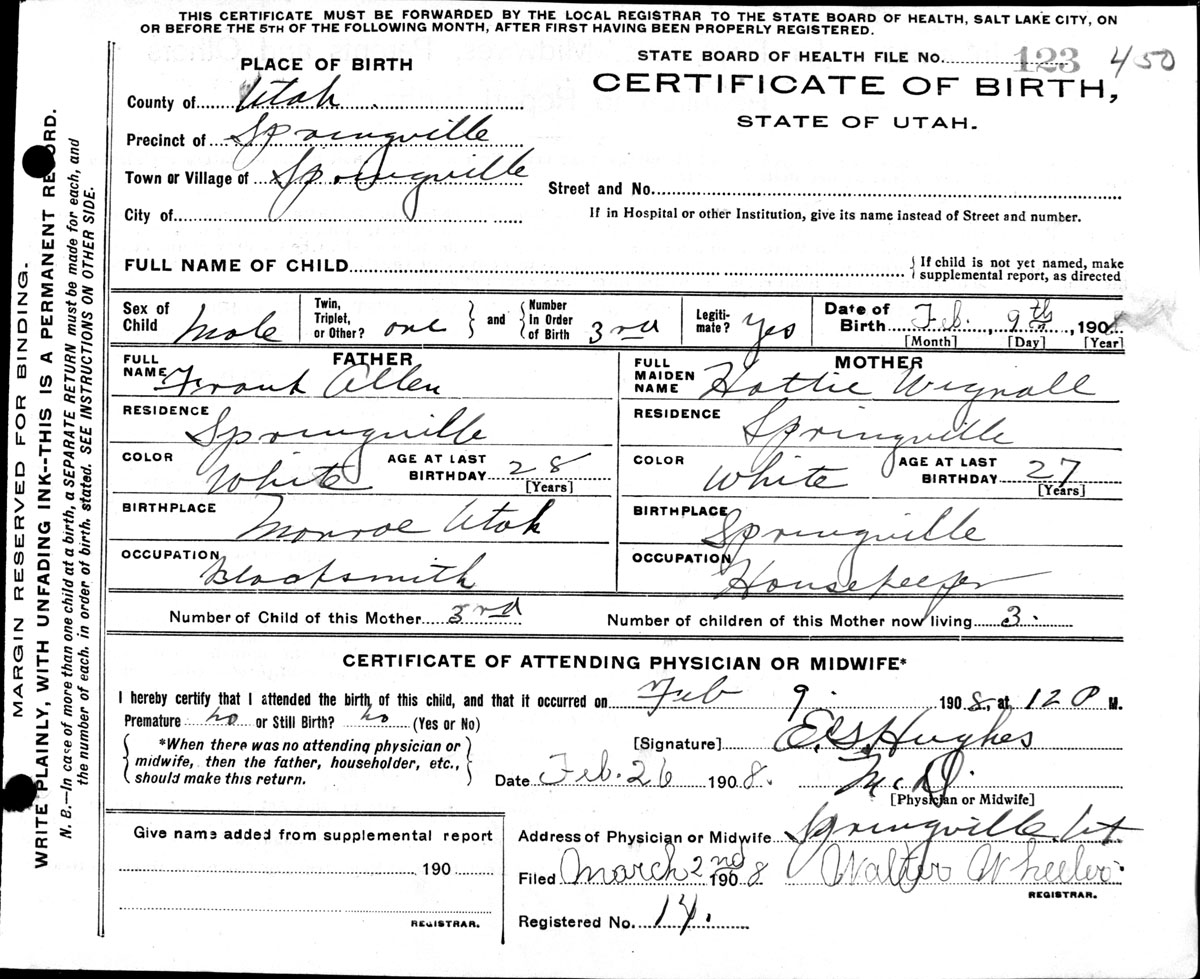 THIS CERTIFICATE MUST BE FORWARDED BY THE LOCAL REGISTRAR TO THE STATE BOARD OF HEALTH, SALT LAKE CITY, ON
OR BEFORE THE 5TH OF THE FOLLOWING MONTH, AFTER FIRST HAVING BEEN PROPERLY REGISTERED.
STATE BOARD OF HEALTH FILE NO. 123 450
PLACE OF BIRTH
CERTIFICATE OF BIRTH,
STATE OF UTAH.
County of Utah
Precinct of Springville
Town or Village of Springville
Street and No.
City of
If in Hospital or other Institution, give its name instead of Street and number.
FULL NAME OF CHILD
{ If child is not yet named, make
supplemental report, as directed
Sex of Child Male
Twin, Triplet, or Other? one } and { Number In Order of Birth 3rd
Legiti-mate? Yes
Date of Birth Feb. , 9th , 190
[Month] [Day] [Year]
FATHER
FULL NAME Frank Allen
RESIDENCE Springville
COLOR White AGE AT LAST BIRTHDAY 28
[Years]
BIRTHPLACE Monroe Utah
OCCUPATION Blacksmith
MOTHER
FULL MAIDEN NAME Hattie Wignall
RESIDENCE Springville
COLOR White AGE AT LAST BIRTHDAY 27
[Years]
BIRTHPLACE Springville
OCCUPATION Housekeeper
Number of Child of this Mother 3rd Number of children of this Mother now living 3.
CERTIFICATE OF ATTENDING PHYSICIAN OR MIDWIFE*
I hereby certify that I attended the birth of this child, and that it occurred on Feb 9. 1908, at 12 P M.
Premature no or Still Birth? no (Yes or No)
{ *When there was no attending physician or
midwife, then the father, householder, etc.,
should make this return. }
[Signature] E. G. Hughes
Date Feb. 26 1908. M. D.
[Physician or Midwife]
Give name added from supplemental report
190
REGISTRAR.
Address of Physician or Midwife Springville Ut
Filed March 2nd 1908 Walter Wheeler
REGISTRAR.
Registered No. 14.
MARGIN RESERVED FOR BINDING.
WRITE PLAINLY, WITH UNFADING INK--THIS IS A PERMANENT RECORD.
N. B.—In case of more than one child at a birth, a SEPARATE RETURN must be made for each, and
the number of each, in order of birth, stated. SEE INSTRUCTIONS ON OTHER SIDE.